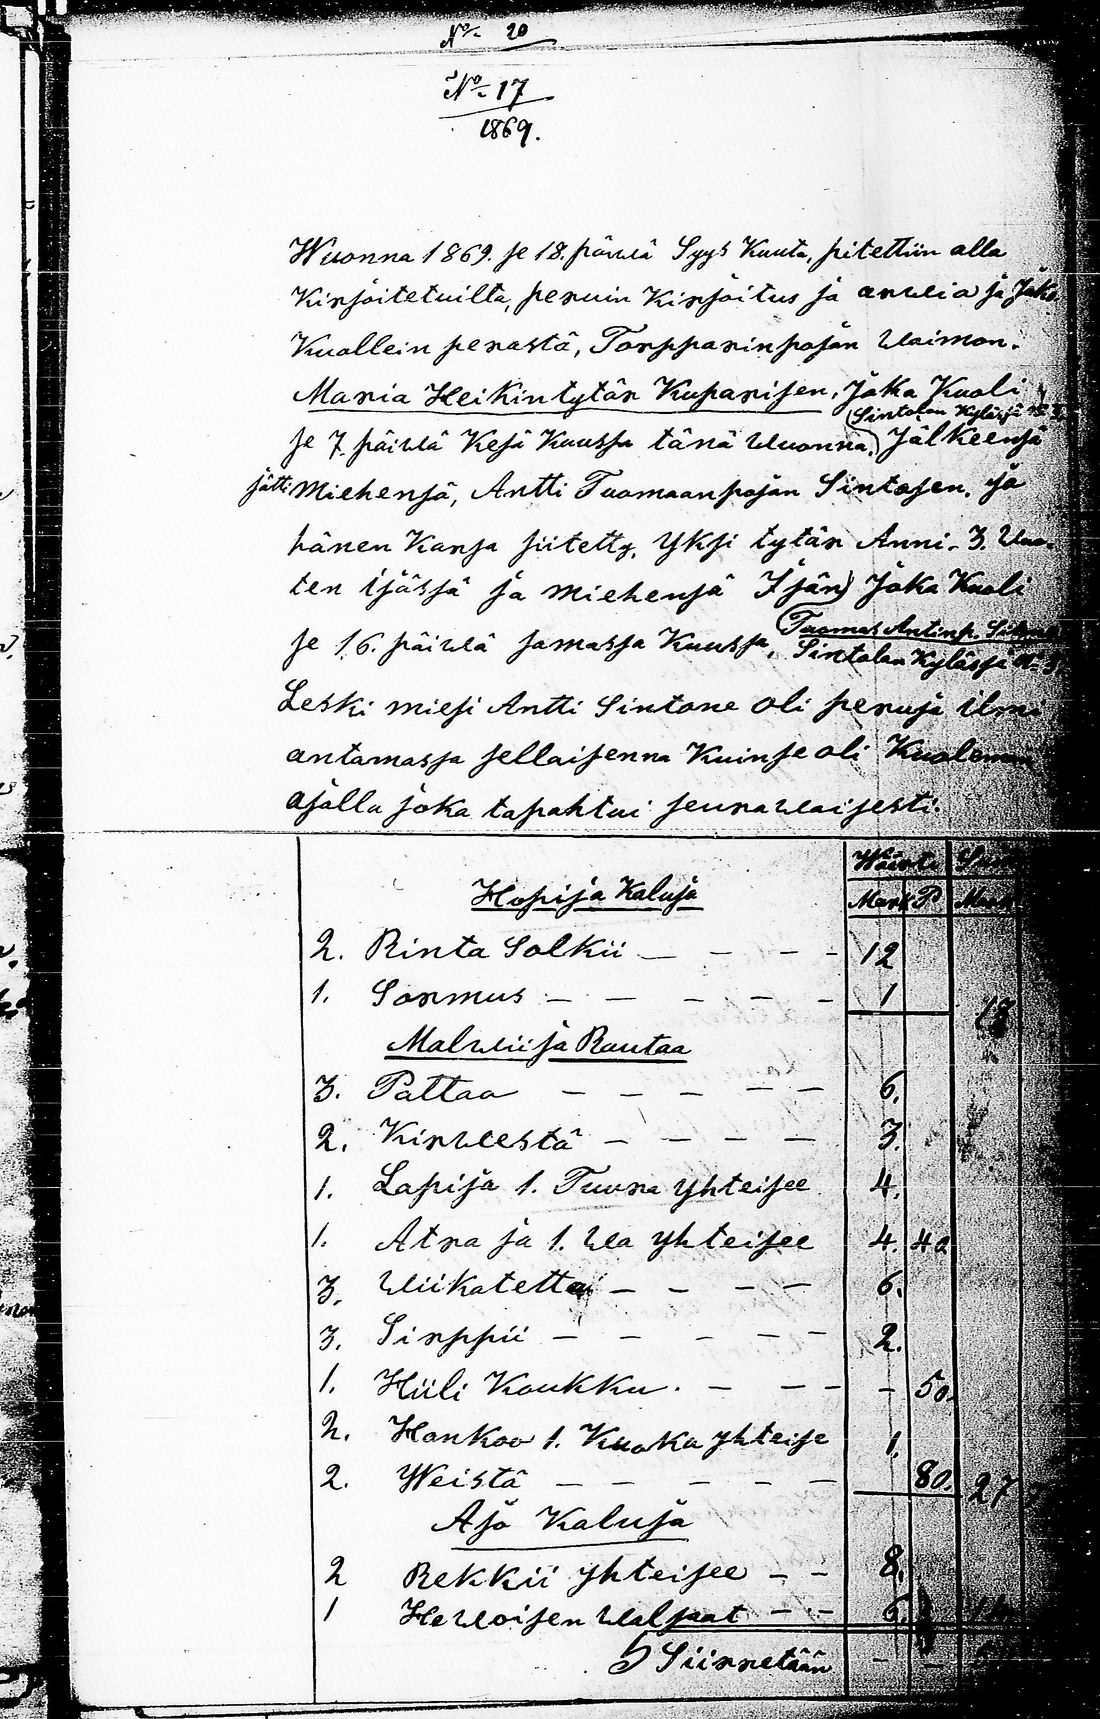 No 20
No 17
1869.
Wuonna 1869. se 18. päiwä Syys Kuuta, pitettiin alla
Kirjoitetuilta, peruin Kirjoitus ja arwio ja Jako
Kuollein perästä, Torpparinpojan Waimon.
Maria Heikintytär Kuparisen, Joka Kuoli
(Sintolan Kylässä
se 7. päiwä Kesä Kuussa tänä Wuonna,) Jälkeensä
jätti Miehensä, Antti Tuomaanpojan Sintosen, ja
hänen Kansa siitetty, Yksi tytär Anni. 3. Wuo-
ten ijässä ja Miehensä Isän) Joka Kuoli
(Tuomas Antinp.
se 16. päiwä samassa Kuussa, Sintolan Kylässä
Leski miesi Antti Sintone oli pesuja ilmi
antamassa sellaisenna Kuin se oli Kuoleman
ajalla joka tapahtui seurawaisesti.
Summa
Mark P. Mark
Hopija Kaluja
2. Rinta Solkii — — — — 12
1. Sormus — — — — — 1 13
Malwii ja Rautaa
3. Pattaa — — — — — 6.
2. Kirweestä — — — — 3.
1. Lapija 1. Tuura yhteisee 4.
1. Atra ja 1. Wa yhteisee 4. 40
3. Wiikatetta — — — — 6.
3. Sirppii — — — — — 2.
1. Hiili Koukku. — — — — 50.
2. Hankoo 1. Kuokka yhteise 1.
2. Weistä — — — — — 80. 27
Ajo Kaluja
2 Rekkii yhteisee — — 8.
1 Hewoisen Waljaat — — 6.
Siirretään — —